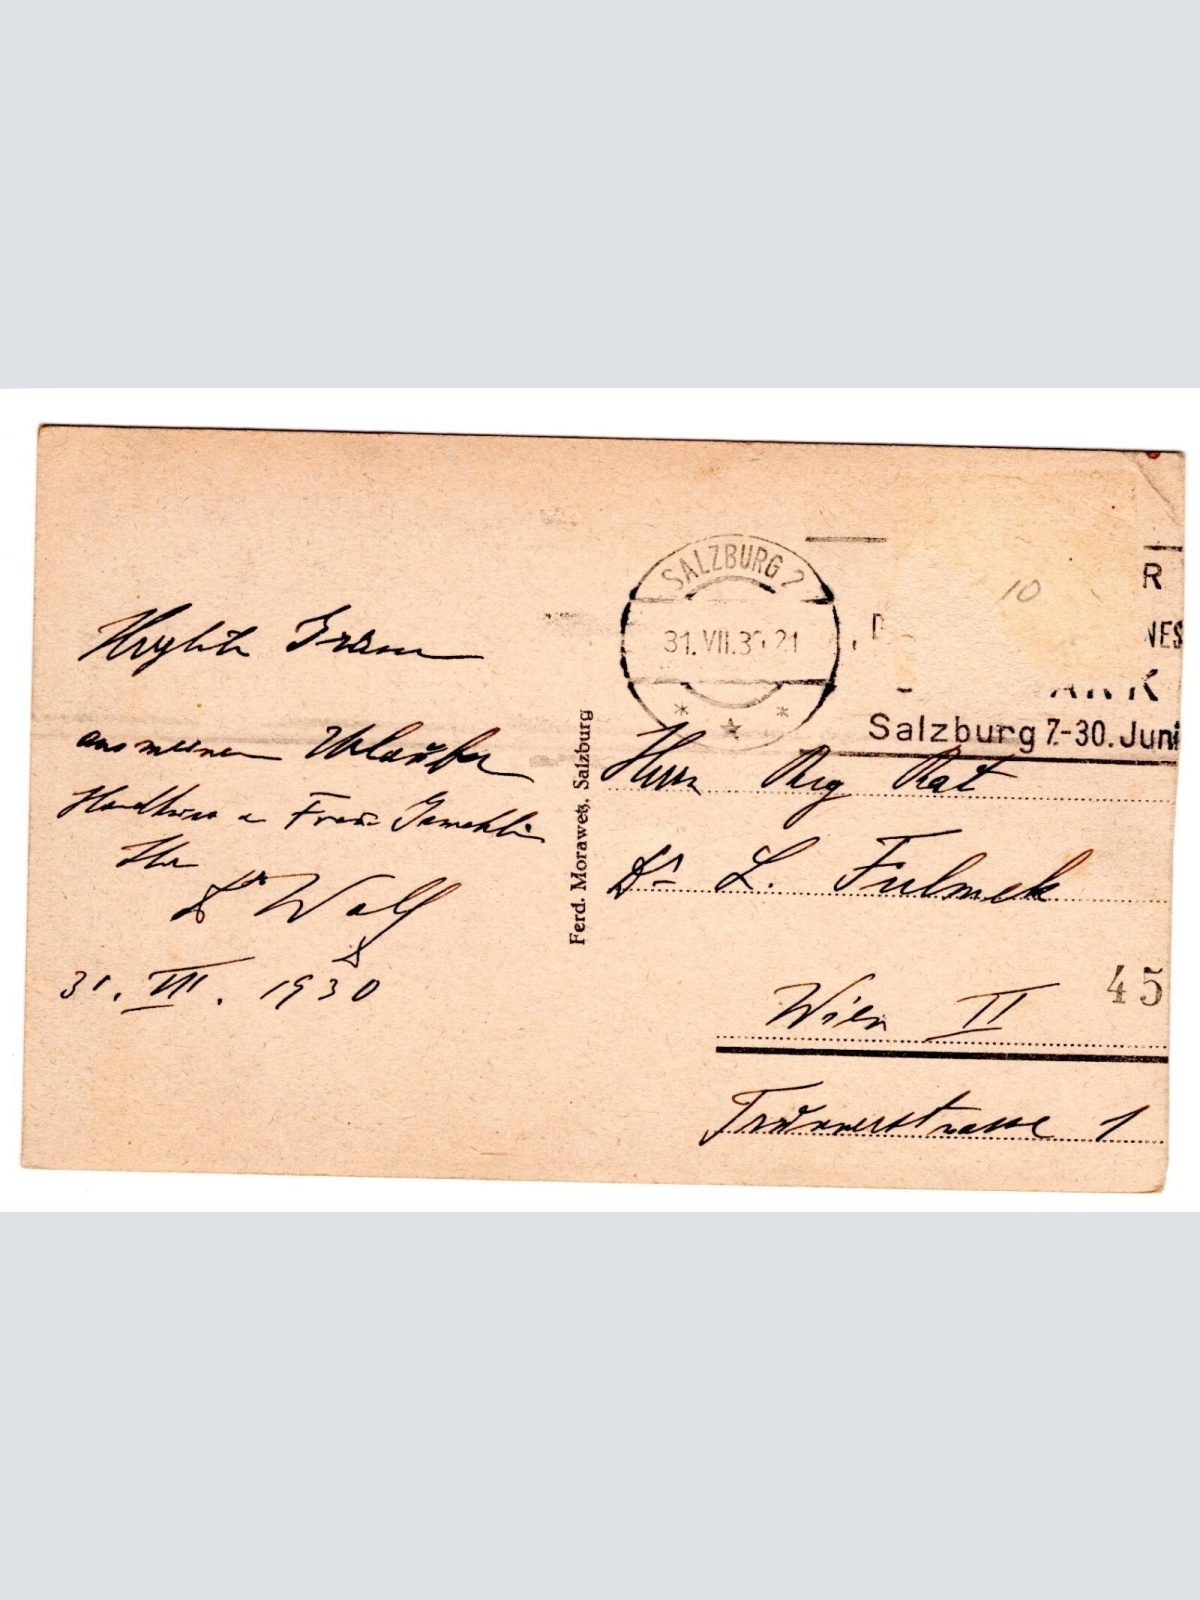 Herzliche Grüsse
aus meinem Urlaub
Handkuss a Frau Gemahlin
Ihr
Dr Wolf
31. VII. 1930
Ferd. Morawetz, Salzburg
SALZBURG 2
31.VII.30 21
R
Salzburg 7.-30. Juni
10
Herrn Reg Rat
Dr L. Fulmek
45
Wien II
Trunnerstrasse 1